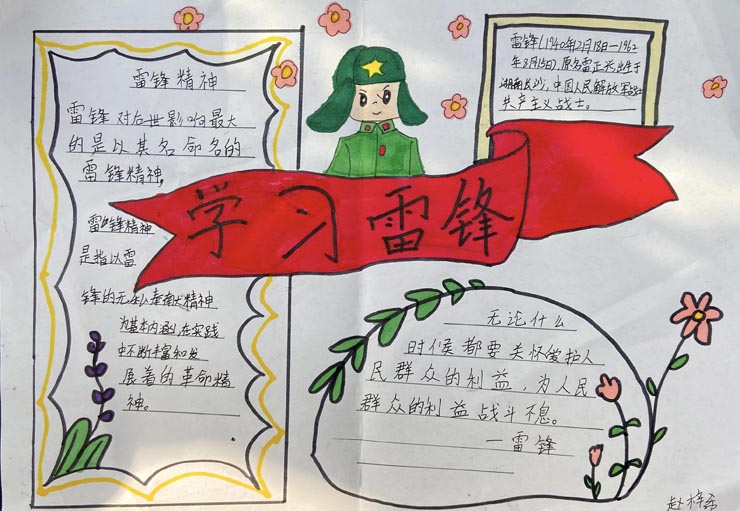 学习雷锋
雷锋精神
雷锋对后世影响最大
的是以其名命名的
雷锋精神,
雷锋精神
是指以雷
锋的无私奉献精神
为基本内涵,在实践
中不断丰富和发
展着的革命精
神。
雷锋(1940年12月18日—1962
年8月15日),原名雷正兴,出生于
湖南长沙,中国人民解放军战士
共产主义战士。
无论什么
时候都要关怀爱护人
民群众的利益,为人民
群众的利益战斗不息。
—雷锋
赵梓